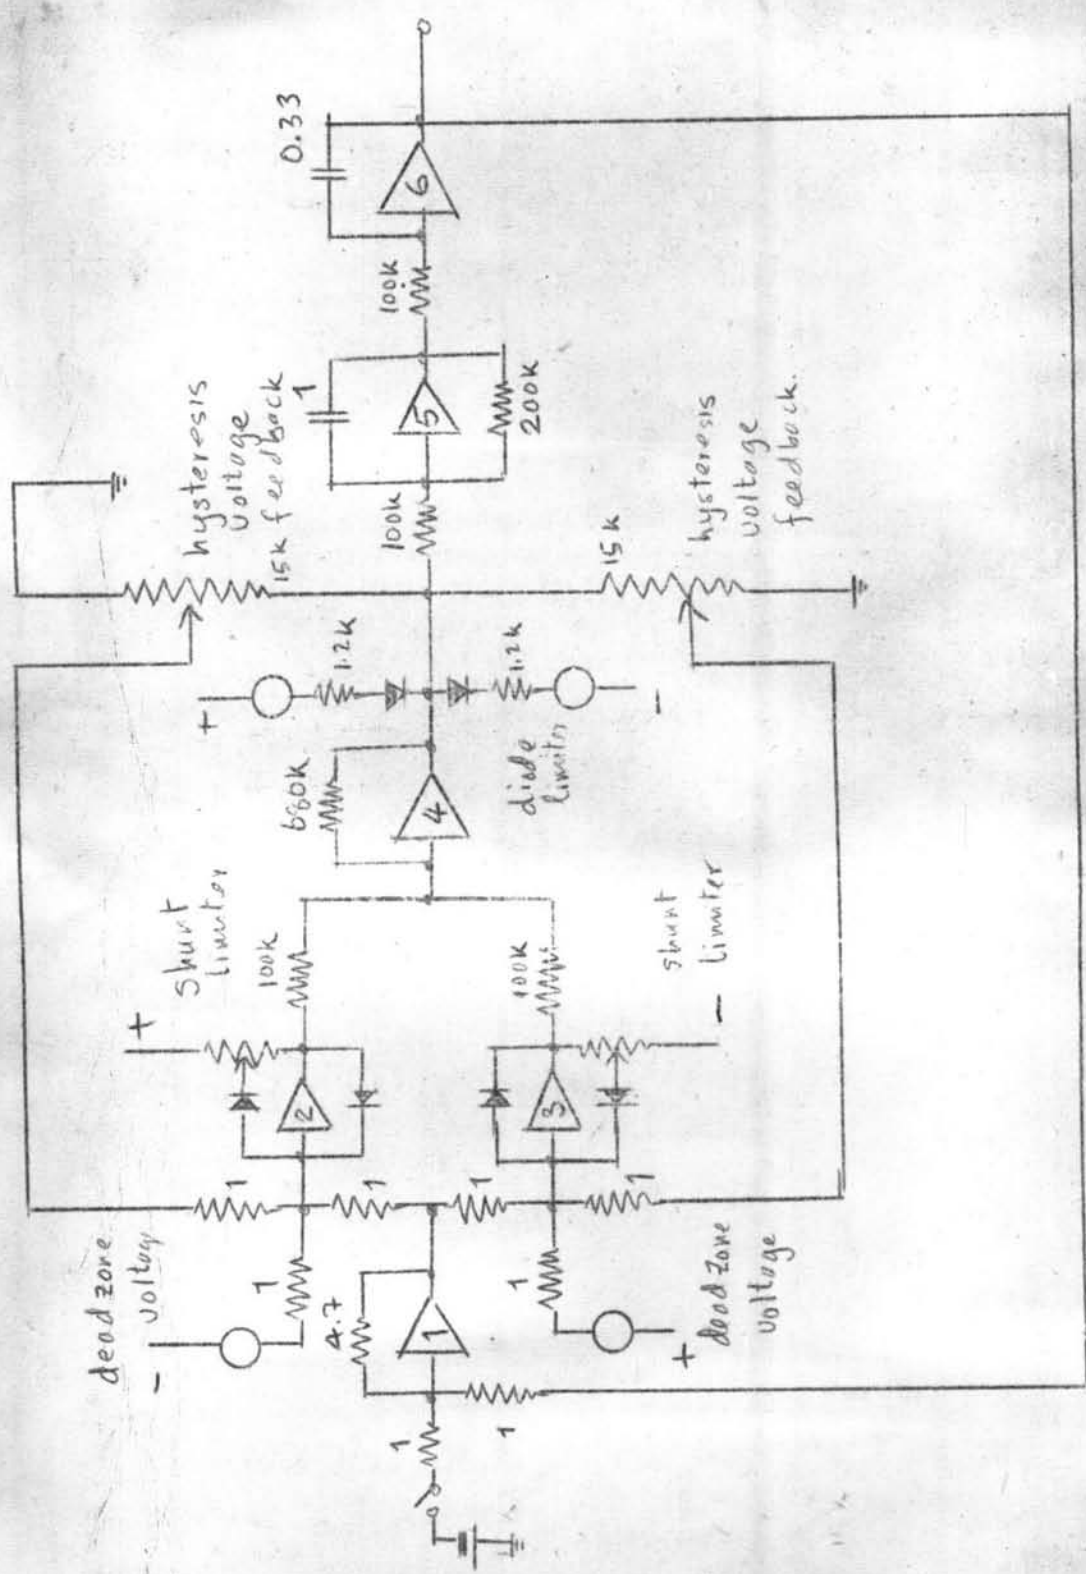 dead zone
voltage
-
1
1
1
4.7
1
1
1
1
1
1
+
dead zone
voltage
+
shunt
limiter
2
100k
3
100k
shunt
limiter
-
680k
4
diode
limiter
+
1.2k
1.2k
-
hysteresis
voltage
feedback
15k
100k
15k
hysteresis
voltage
feedback.
1
5
200k
100k
0.33
6